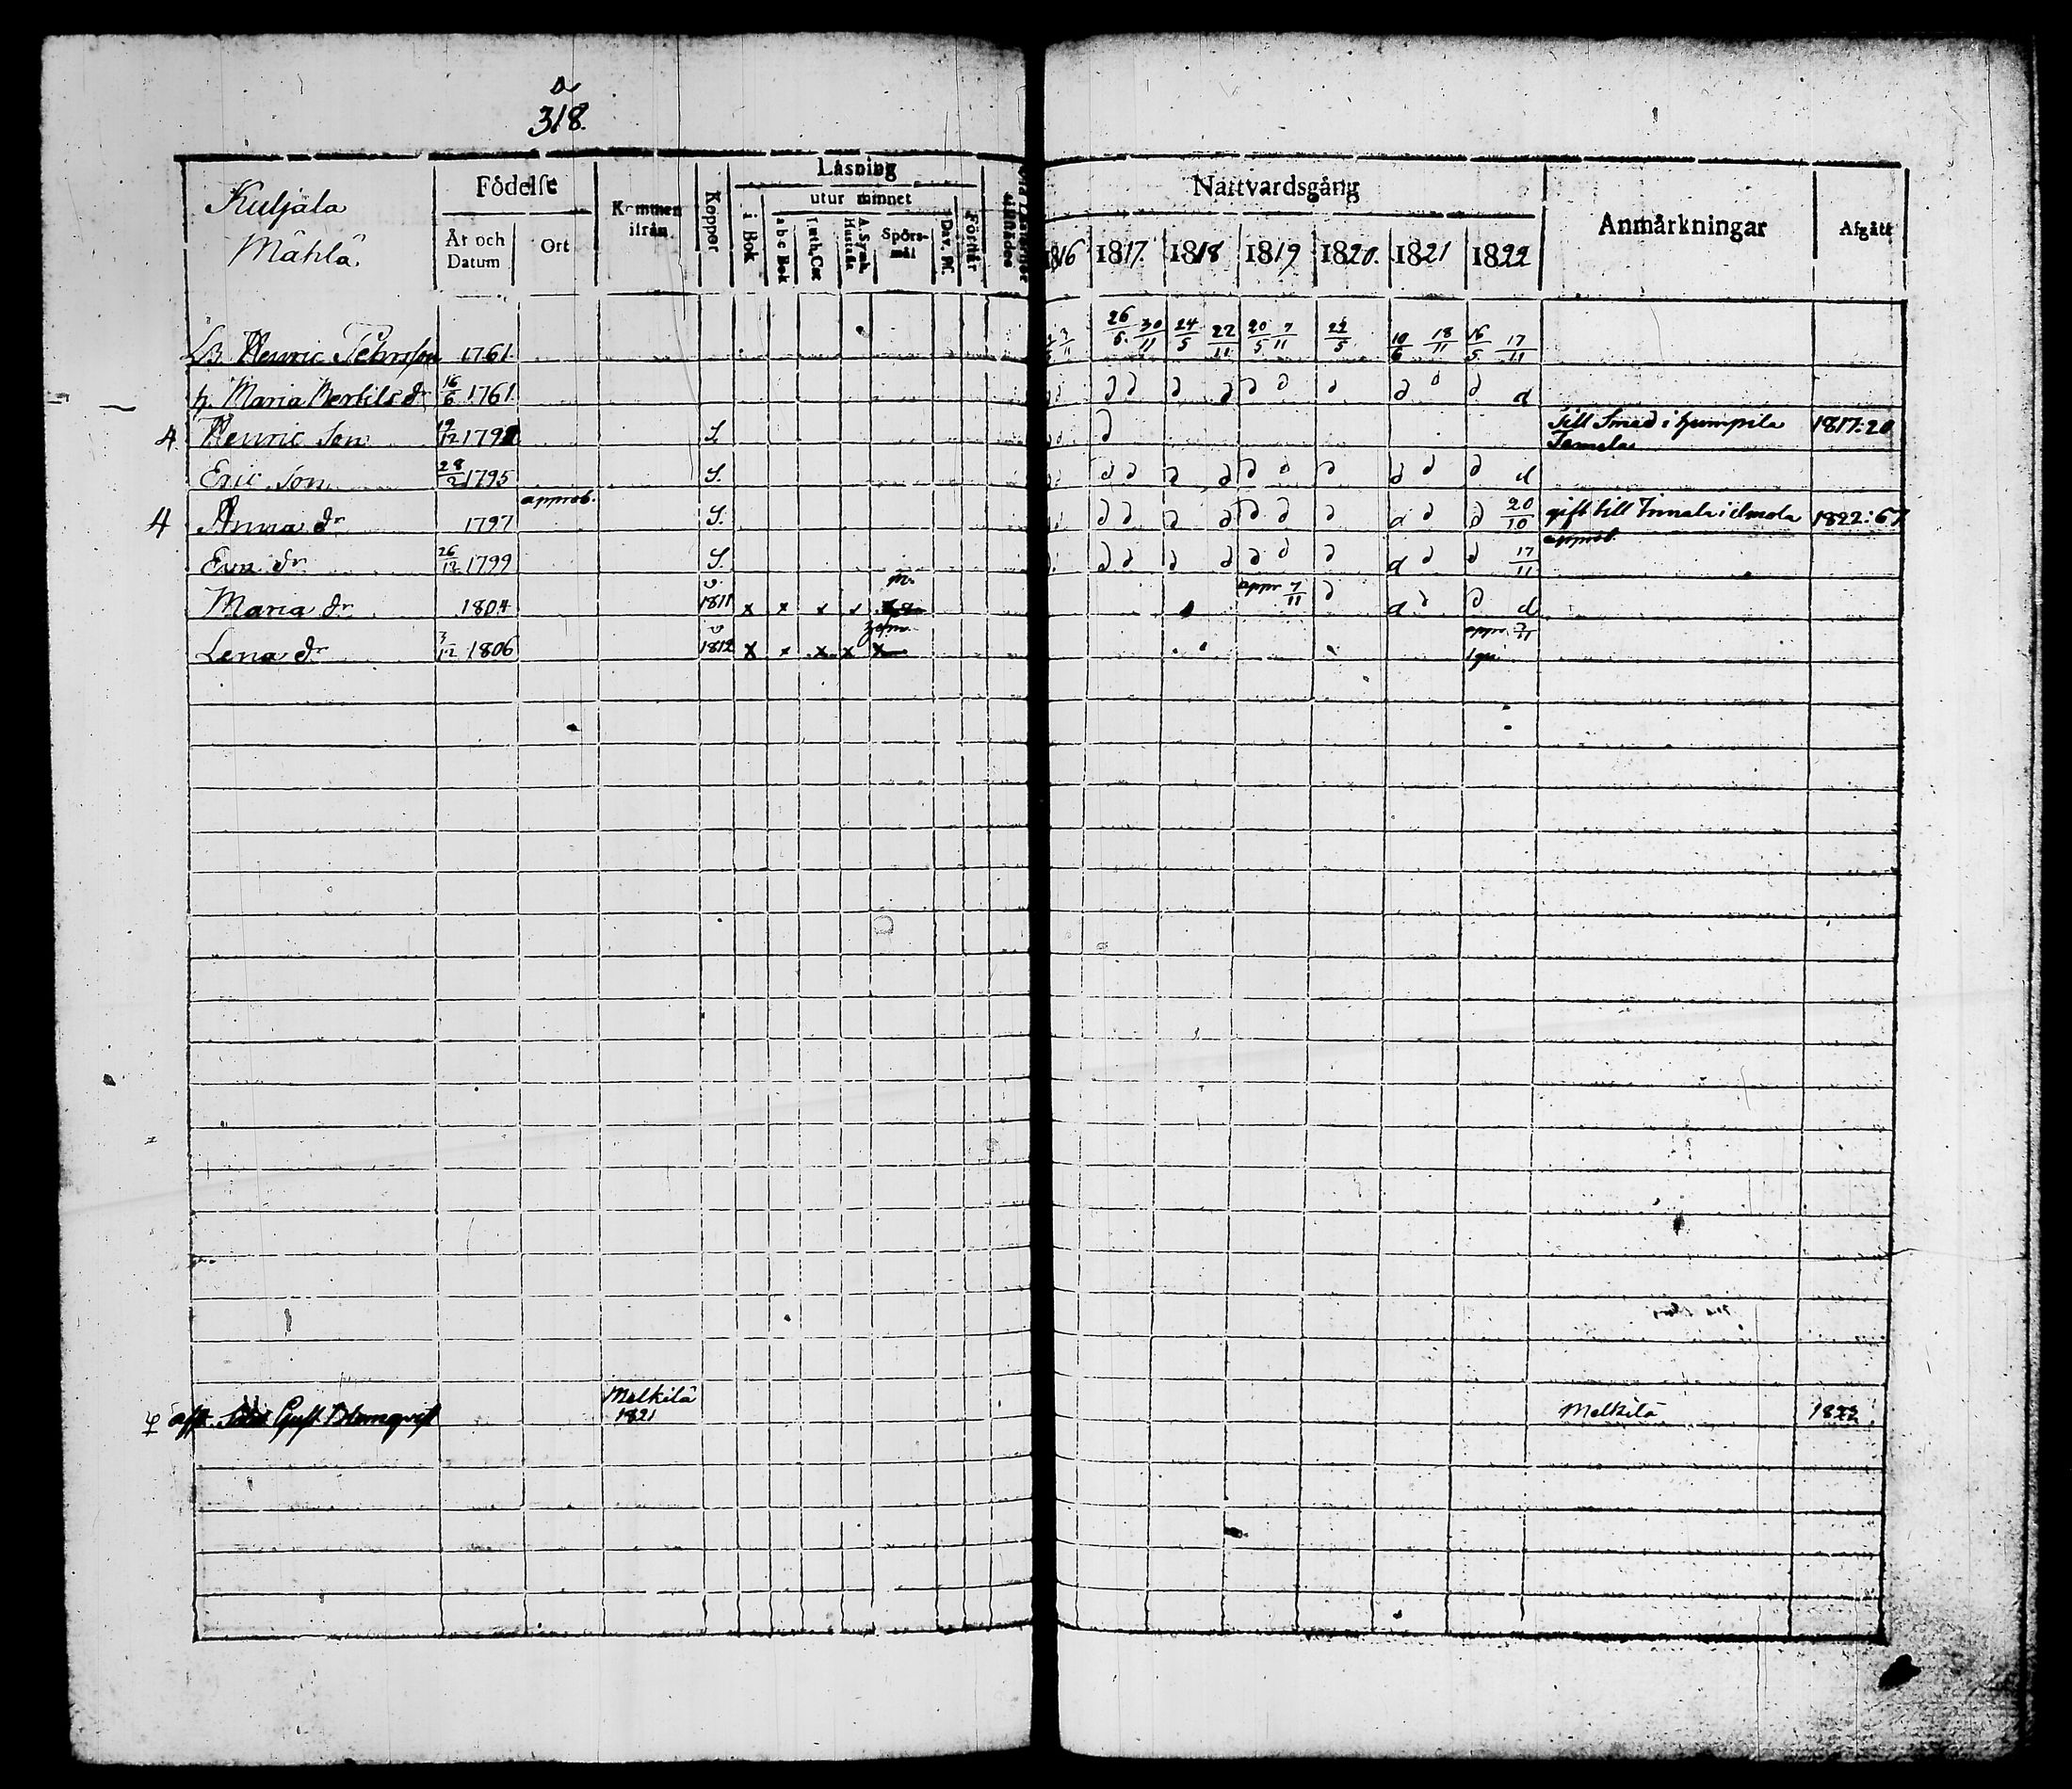 a
318.
Kuljala
Mählä.
Födelse
År och Datum
Ort
Kommen ifrån
Koppor
Läsning
utur minnet
i Bok
a b c Bok
Luth. Cat
A. Symb. Hustafla
Spörsmål
Dav. Ps.
Förstår
Nattvardsgång
1816 1817. 1818 1819 1820. 1821 1822
Anmärkningar
Afgått
Henric Pehrsson 1761 26/5 30/11 24/5 22/11 20/5 7/11 22/5 10/6 18/11 16/5 17/11
h. Maria Bertils dr 16/6 1761 d d d d d d d d d d d
4 Henric Son 19/12 S. d Till Smed i Humpila Tamela 1817:20
Eric Son 28/2 1795 S. d d d d d d d d d d d
4 Anna dr 1797 approb. S. d d d d d d d d d d 20/10 gift till Innala i 1822:67
approb.
Eva dr 26/12 1799 S. d d d d d d d d d d 17/11
Maria dr 1804 v. 1811 x x x x m. appr 7/11 d d d d d
Lena dr 3/12 1806 v 1812 x x x x x appr.
Gust Blomqvist Melkilä 1821 Melkilä